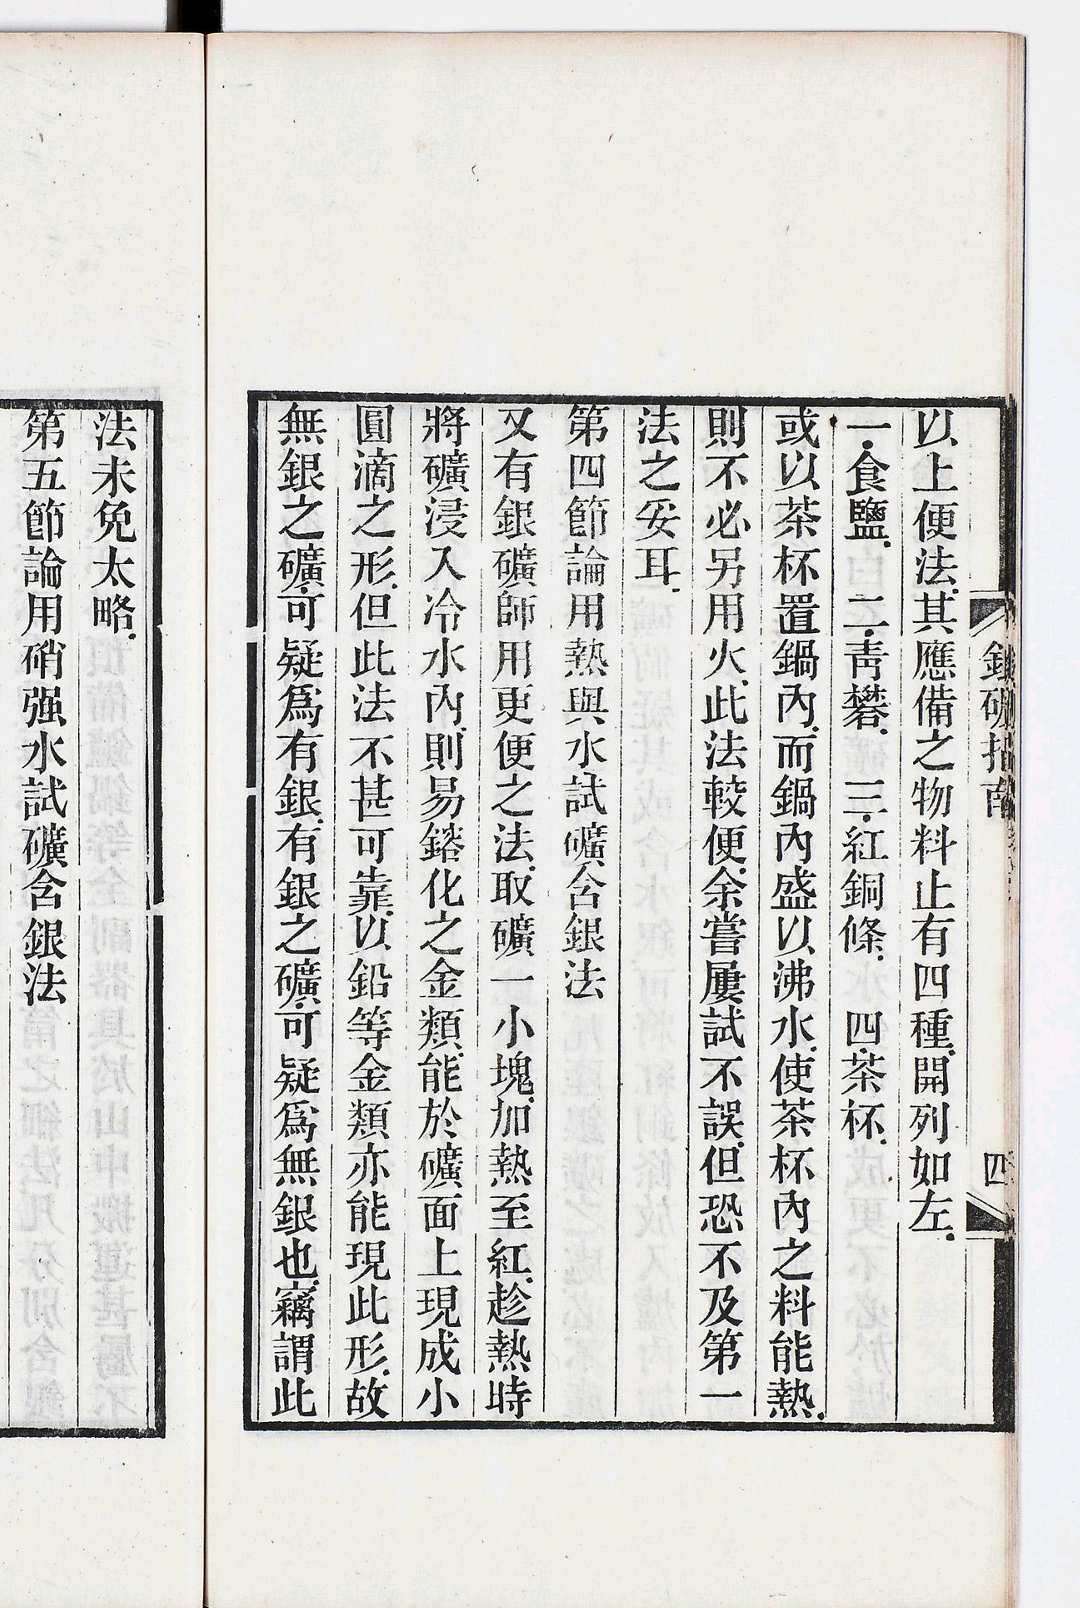 銀礦指南
四
以上便法.其應備之物料止有四種.開列如左.
一.食鹽. 二.靑礬. 三.紅銅條. 四.茶杯.
或以茶杯置鍋內.而鍋內盛以沸水.使茶杯內之料能熱.
則不必另用火.此法較便.余嘗屢試不誤.但恐不及第一
法之妥耳.
第四節論用熱與水試礦含銀法
又有銀礦師用更便之法.取礦一小塊.加熱至紅.趁熱時
將礦浸入冷水內.則易鎔化之金類.能於礦面上現成小
圓滴之形.但此法不甚可靠.以鉛等金類亦能現此形.故
無銀之礦.可疑爲有銀.有銀之礦.可疑爲無銀也.竊謂此
法未免太略.
第五節論用硝强水試礦含銀法